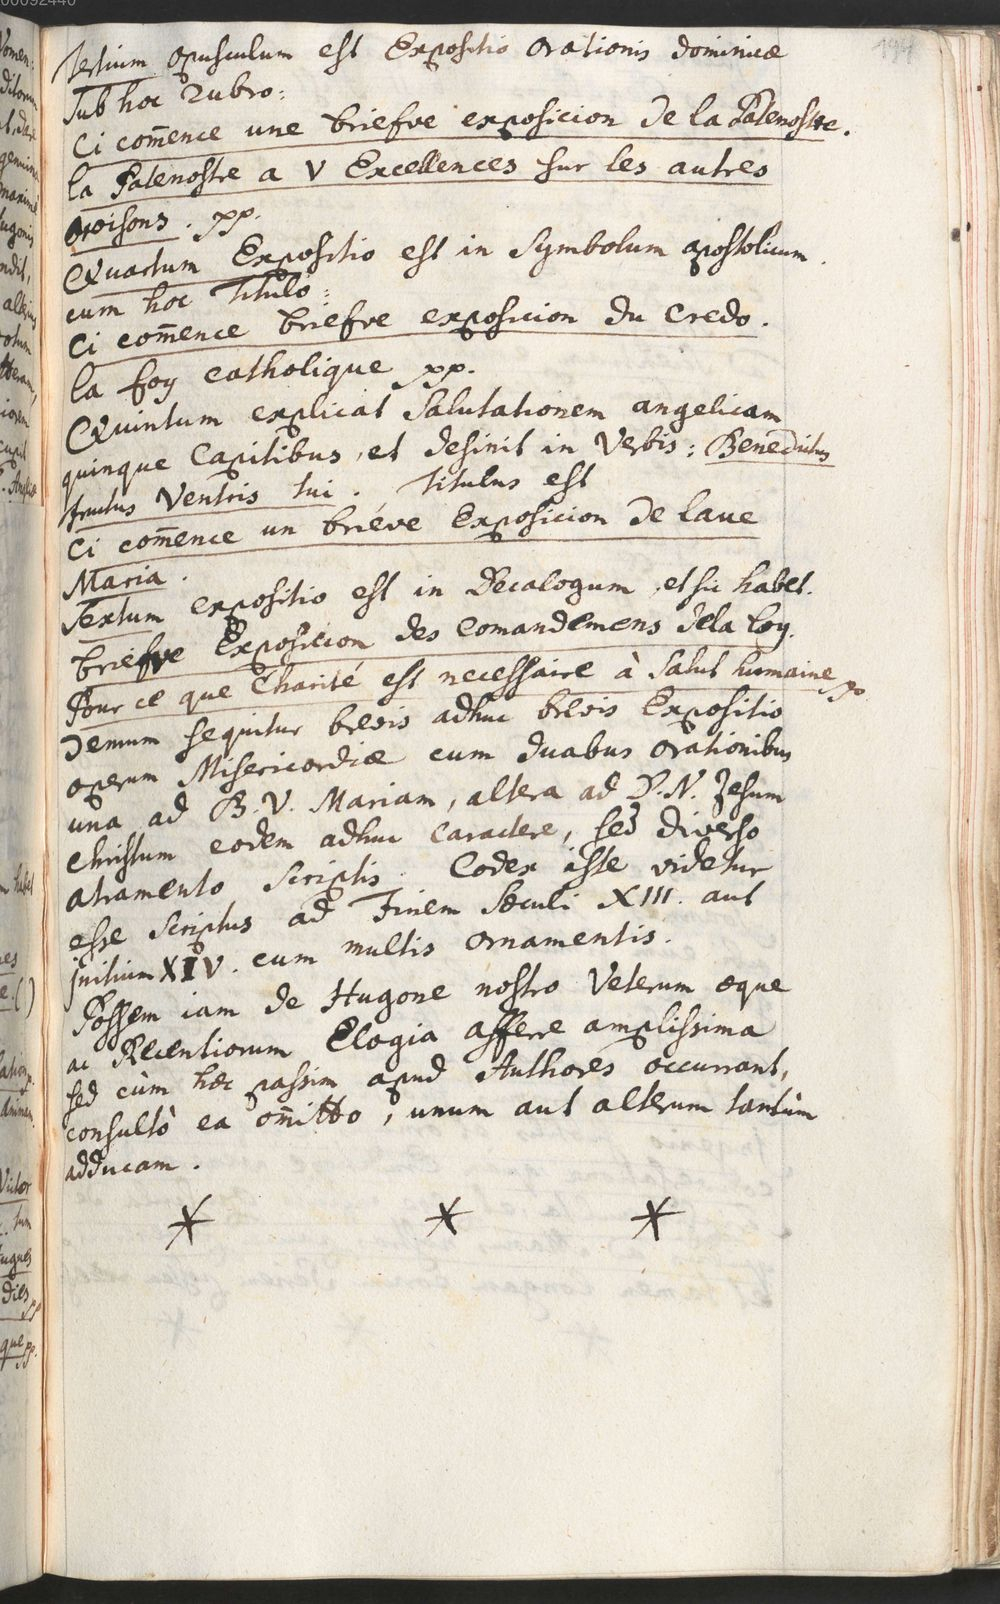 Tertium opusculum est Expositio orationis dominicæ
sub hoc Rubro:
Ci com̄ence une briefve exposicion de la Patenostre.
la Patenostre a V Excellences sur les autres
oroisons. pp.
Quartum Expositio est in Symbolum apostolicum.
cum hoc Titulo:
Ci com̄ence briefve exposicion du Credo.
la foy catholique pp.
Quintum explicat Salutationem angelicam
quinque Capitibus, et desinit in Verbis: Benedictus
fructus Ventris tui. Titulus est
Ci com̄ence un briéve Exposicion de lave
Maria.
Sextum expositio est in Decalogum, et sic habet.
briefve Exposicion des Comandemens dela loy.
Pour ce que Charité est necessaire à salut humaine pp
demum sequitur brevis adhuc brevis Expositio
operum Misericordiæ cum duabus orationibus
una ad B. V. Mariam, altera ad D. N. Jesum
Christum eodem adhuc caractere, sed diverso
atramento scriptis. Codex iste videtur
esse scriptus ad Finem Sæculi XIII. aut
initium XIV. cum multis ornamentis.
Possem iam de Hugone nostro Veterum æque
ac Recentiorum Elogia afferre amplissima
sed cùm hæc passim apud Authores occurrant,
consultò ea om̄itto, unum aut alterum tantùm
adducam.
* * *